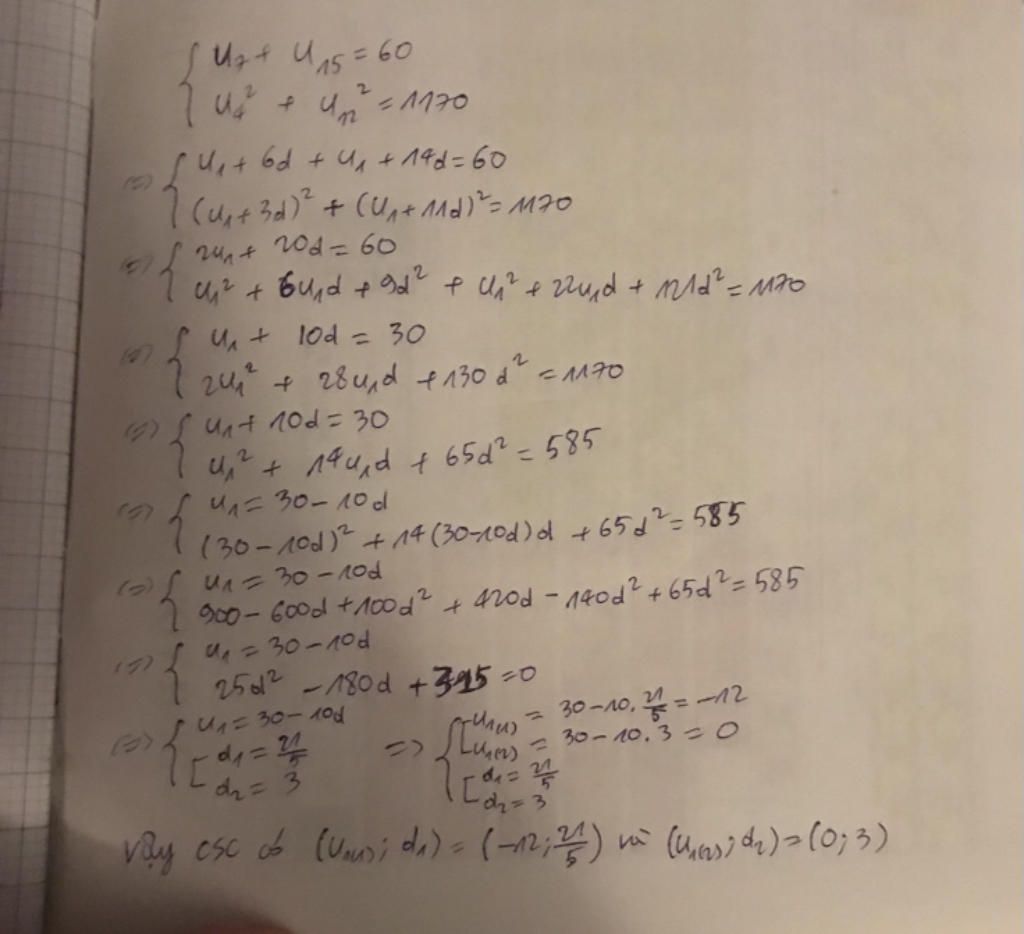 { u₇ + u₁₅ = 60
u₄² + u₁₂² = 1170
(=) { u₁ + 6d + u₁ + 14d = 60
(u₁ + 3d)² + (u₁ + 11d)² = 1170
(=) { 2u₁ + 20d = 60
u₁² + 6u₁d + 9d² + u₁² + 22u₁d + 121d² = 1170
(=) { u₁ + 10d = 30
2u₁² + 28u₁d + 130d² = 1170
(=) { u₁ + 10d = 30
u₁² + 14u₁d + 65d² = 585
(=) { u₁ = 30 - 10d
(30 - 10d)² + 14(30 - 10d)d + 65d² = 585
(=) { u₁ = 30 - 10d
900 - 600d + 100d² + 420d - 140d² + 65d² = 585
(=) { u₁ = 30 - 10d
25d² - 180d + 315 = 0
(=) { u₁ = 30 - 10d
[ d₁ = 21/5
d₂ = 3
=> { [ u₁₍₁₎ = 30 - 10. 21/5 = -12
u₁₍₂₎ = 30 - 10. 3 = 0
[ d₁ = 21/5
d₂ = 3
Vậy csc có (u₁₍₁₎; d₁) = (-12; 21/5) và (u₁₍₂₎; d₂) = (0; 3)